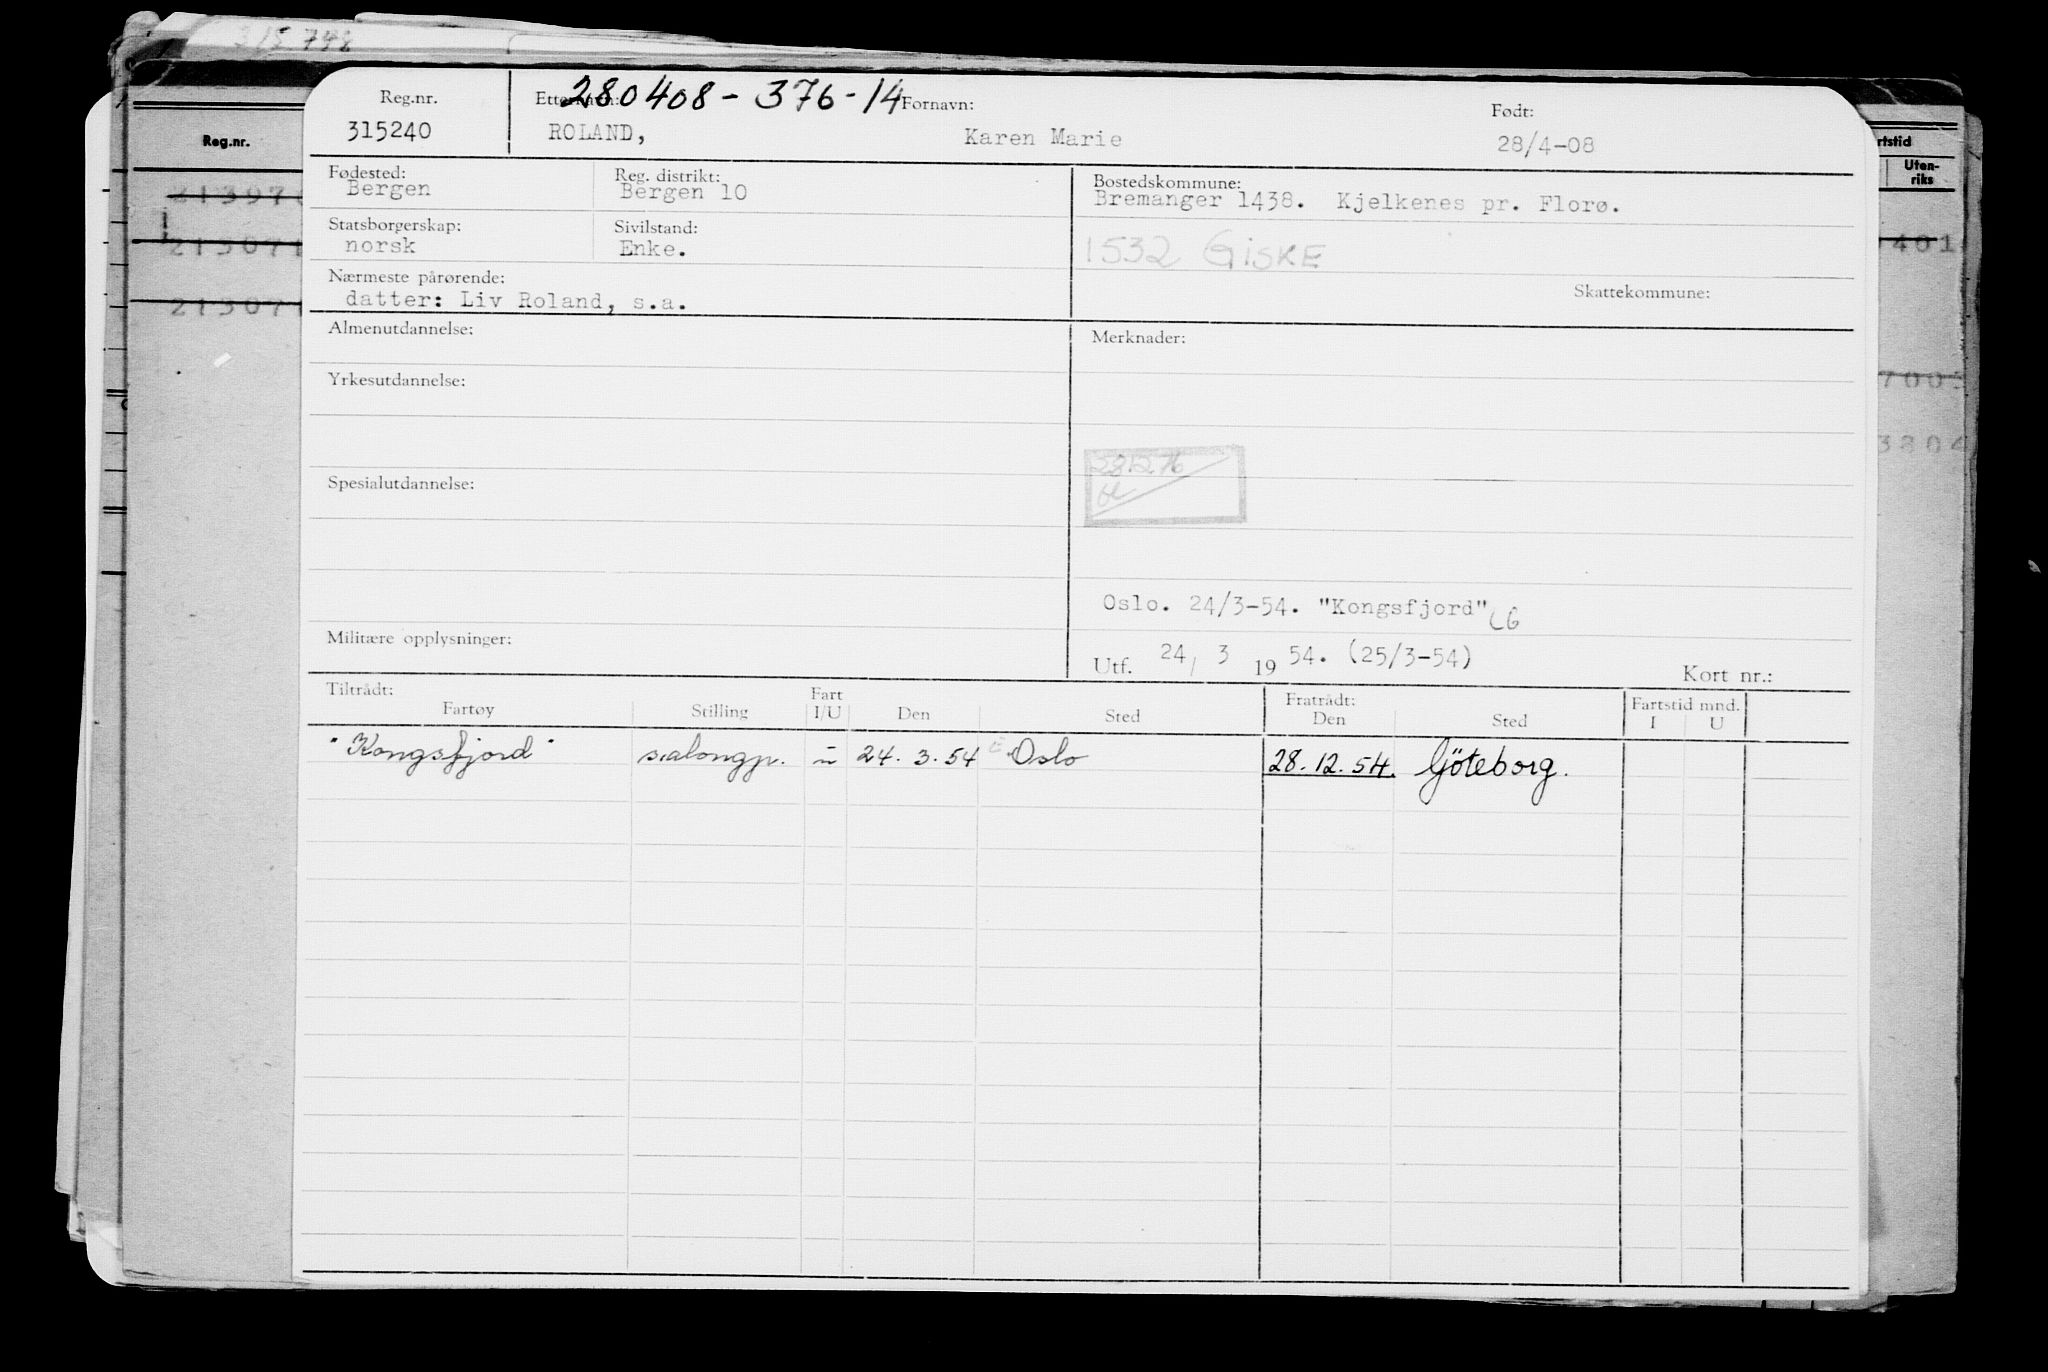 315 742
Reg.nr. Etternavn: 280408-376-14 Fornavn: Født:
315240 ROLAND, Karen Marie 28/4-08
Fødested: Reg. distrikt: Bostedskommune:
Bergen Bergen 10 Bremanger 1438. Kjelkenes pr. Florø.
Statsborgerskap: Sivilstand:
norsk Enke. 1532 GISKE
Nærmeste pårørende: Skattekommune:
datter: Liv Roland, s.a.
Almenutdannelse: Merknader:
Yrkesutdannelse:
28.12.76
Spesialutdannelse:
Oslo. 24/3-54. "Kongsfjord" LG
Militære opplysninger:
Utf. 24/ 3 19 54. (25/3-54) Kort nr.:
Tiltrådt: Fart Fratrådt: Fartstid mnd.
Fartøy Stilling I/U Den Sted Den Sted I U
"Kongsfjord" salongp. u 24.3.54 Oslo 28.12.54. Göteborg.
Reg.nr.
rtstid
Uten-
riks
401
3804